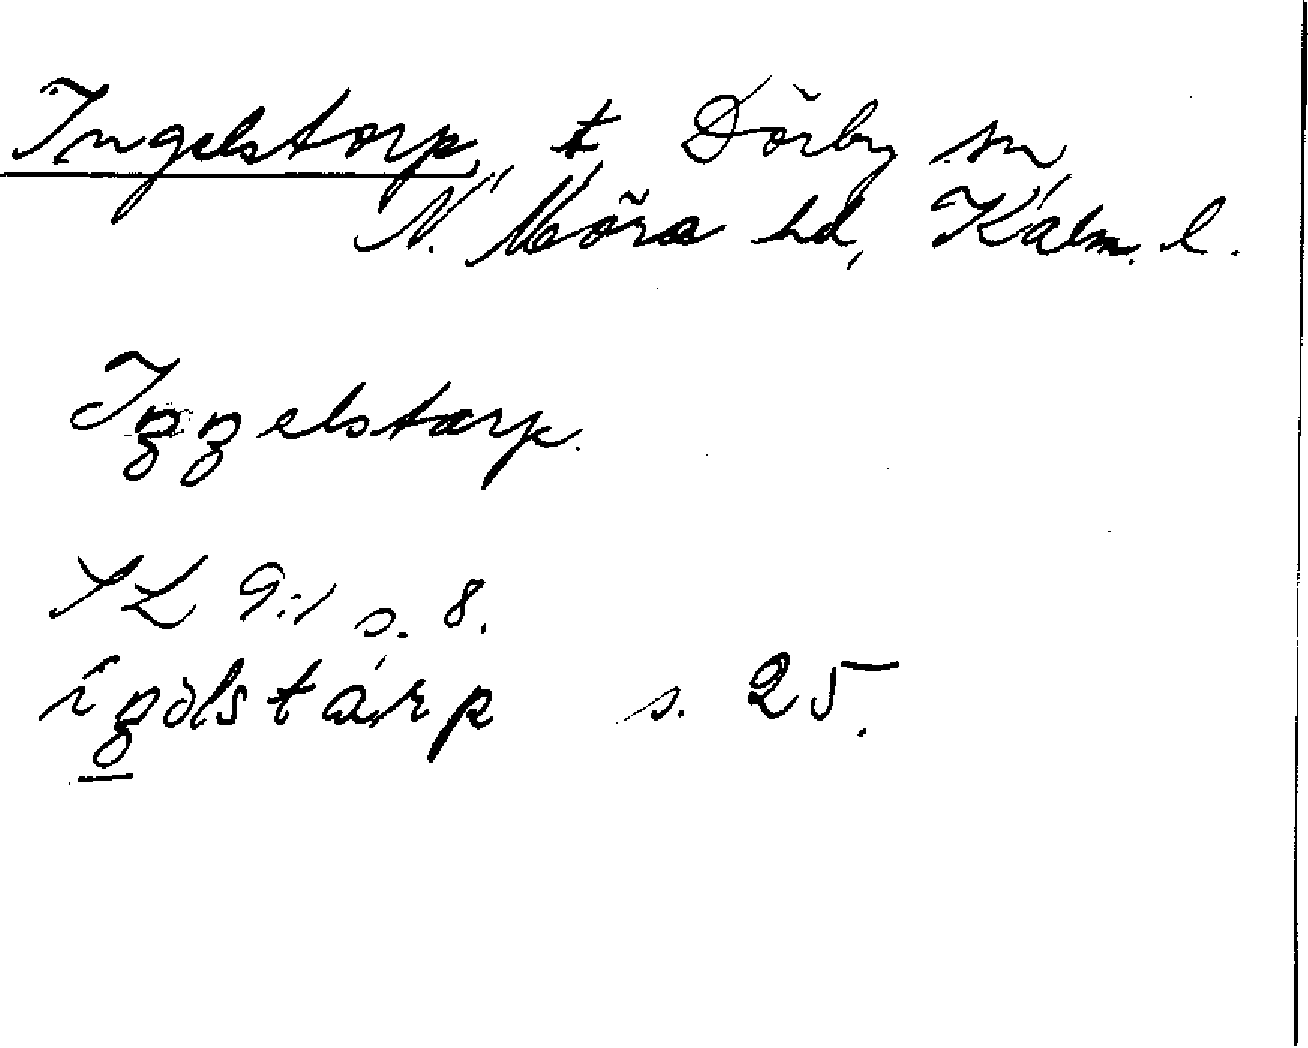 Ingelstorp, t Dörby sn
N. Möre hd, Kalm. l.
Iggelstarp.
SL 9:1 s. 8.
s. 25.